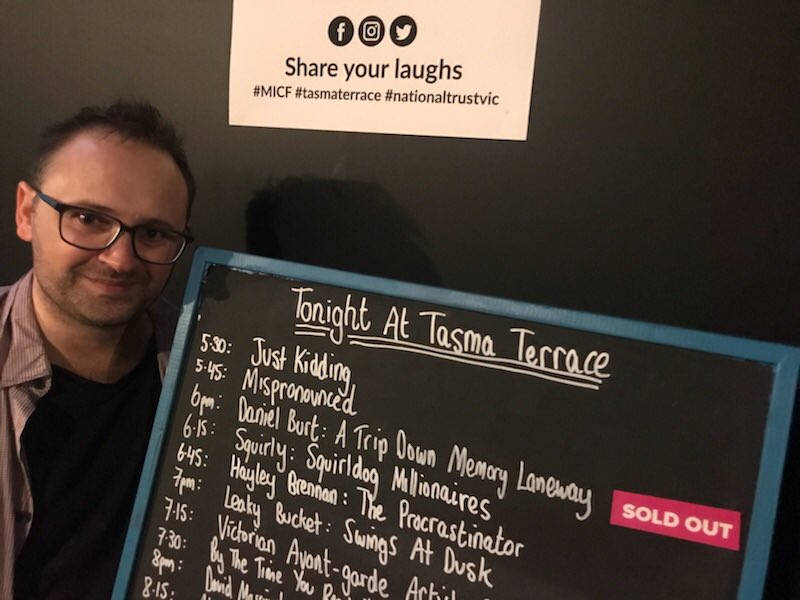 Share your laughs
#MICF #tasmaterrace #nationaltrustvic
Tonight At Tasma Terrace
5:30: Just Kidding
5:45: Mispronounced
6pm: Daniel Burt: A Trip Down Memory Laneway SOLD OUT
6:15: Squirly: Squirldog Millionaires
6:45: Hayley Brennan: The Procrastinator
7pm: Leaky Bucket: Swings At Dusk
7:15: Victorian Avant-garde
7:30: By The Time You
8pm: David
8:15: